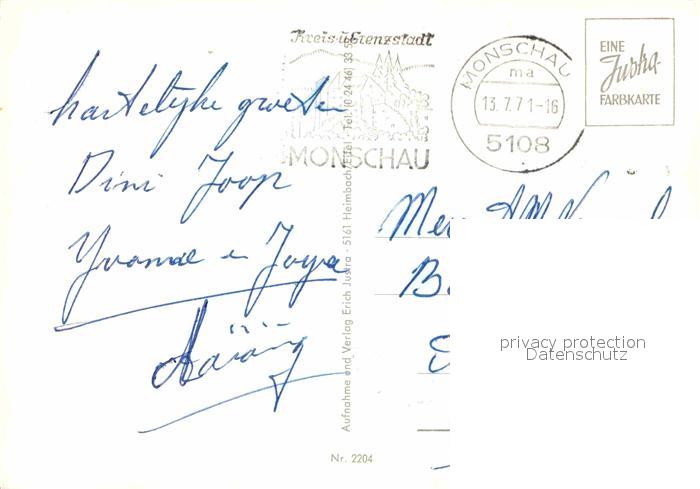 Kreis- u. Grenzstadt
MONSCHAU
MONSCHAU
ma
13.7.71-16
5108
EINE
Justra-
FARBKARTE
hartelijke groeten
Dini Joop
Yvonne en Joyce
Aufnahme und Verlag Erich Justra - 5161 Heimbach/Eifel - Tel. (0 24 46) 33 5
Nr. 2204
privacy protection
Datenschutz